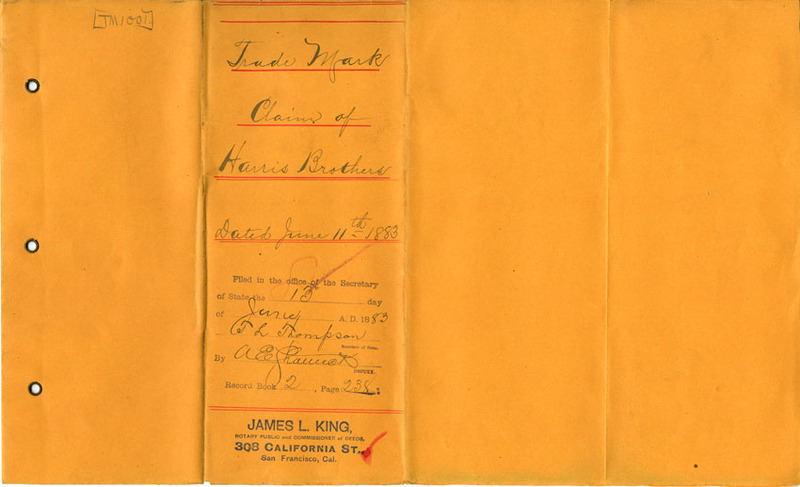 [TM1001]
Trade Mark
Claim of
Harris Brothers
Dated June 11th 1883
Filed in the office of the Secretary
of State the 13 day
of June A. D. 1883
T L Thompson
Secretary of State.
By A E
DEPUTY.
Record Book 2, Page 238.
JAMES L. KING,
NOTARY PUBLIC and COMMISSIONER of DEEDS,
308 CALIFORNIA ST.,
San Francisco, Cal.